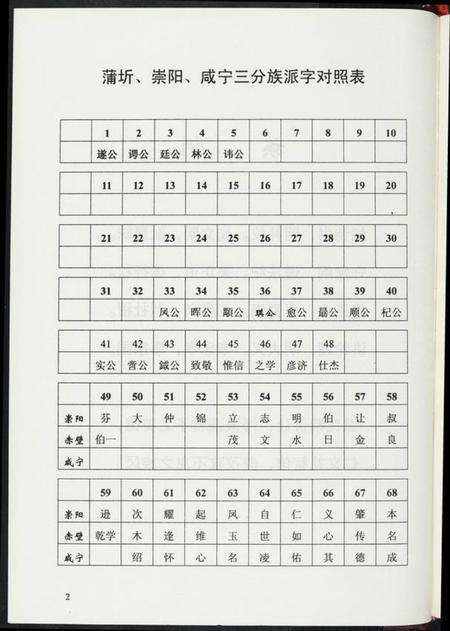 蒲圻、崇阳、咸宁三分族派字对照表
1 2 3 4 5 6 7 8 9 10
遂公 谔公 廷公 林公 讳公
11 12 13 14 15 16 17 18 19 20
21 22 23 24 25 26 27 28 29 30
31 32 33 34 35 36 37 38 39 40
凤公 晖公 顒公 琪公 愈公 勗公 顺公 杞公
41 42 43 44 45 46 47 48
实公 啻公 鉞公 致敬 惟信 之学 彦济 仕杰
49 50 51 52 53 54 55 56 57 58
崇阳 芬 大 仲 锦 立 志 明 伯 让 叔
赤壁 伯一 茂 文 水 日 金 良
咸宁
59 60 61 62 63 64 65 66 67 68
崇阳 逊 次 耀 起 凤 自 仁 义 肇 本
赤壁 乾学 木 逢 维 玉 世 如 心 传 名
咸宁 绍 怀 心 名 凌 佑 其 德 成
2